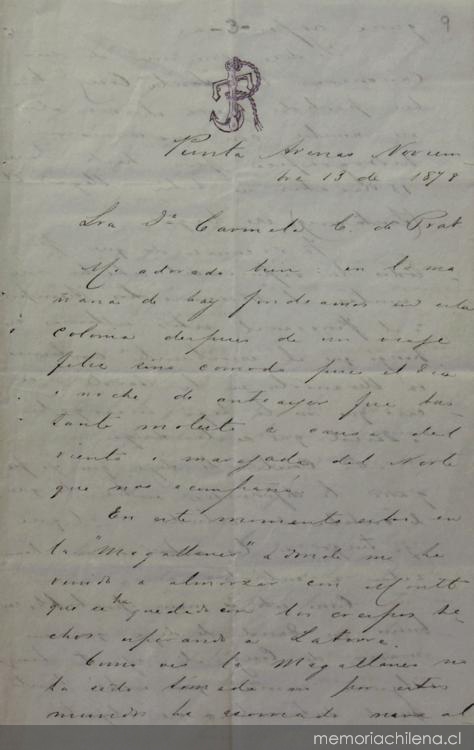 -3-
9
Punta Arenas Noviem
bre 13 de 1878
Sra Da Carmela C. de Prat
Mi adorado bien: en la ma
ñana de hoy fondeamos en esta
colonia despues de un viaje
feliz sino comodo pues el dia
i noche de anteayer fue bas
tante molesto a causa del
viento i marejada del Norte
que nos acompañó
En este momento estoi en
la "Magallanes" a donde me he
venido a almorzar con
que se ha quedado con los crespos he-
chos esperando a Latorre.
Como ves la Magallanes no
ha sido tomada ni por estos
mundos ha asomado nave al
memoriachilena.cl